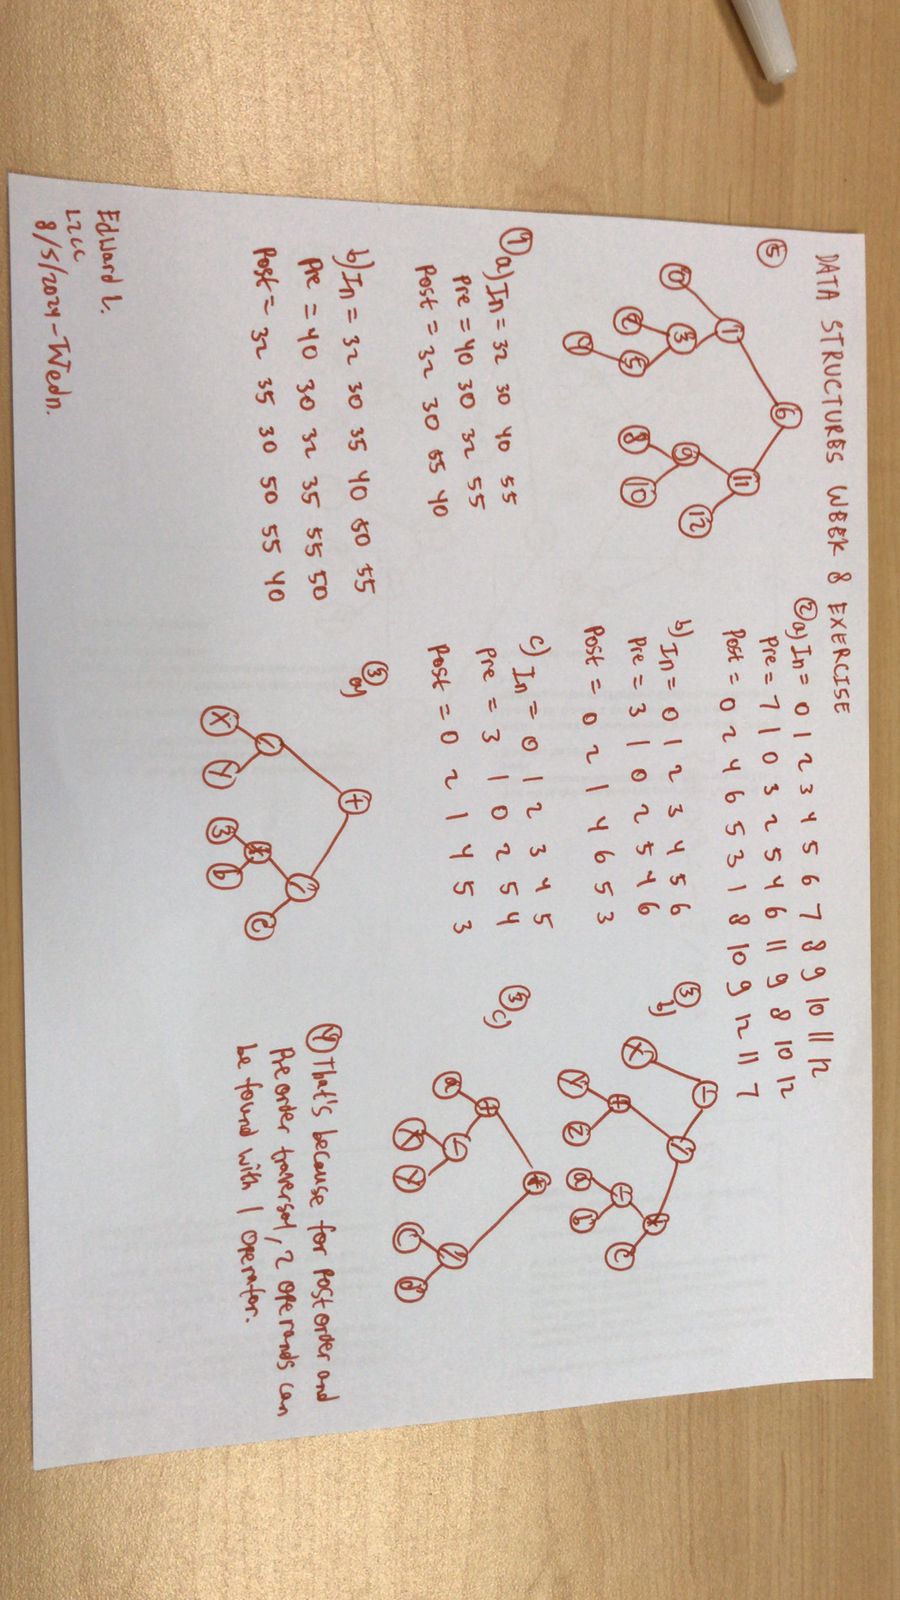 DATA STRUCTURES WEEK 8 EXERCISE
⑤
6
1 11
0 3 9 12
2 5 8 10
4
① a) In = 32 30 40 55
Pre = 40 30 32 55
Post = 32 30 55 40
b) In = 32 30 35 40 50 55
Pre = 40 30 32 35 55 50
Post = 32 35 30 50 55 40
Edward L.
L2CC
8/5/2024 - Wedn.
② a) In = 0 1 2 3 4 5 6 7 8 9 10 11 12
Pre = 7 1 0 3 2 5 4 6 11 9 8 10 12
Post = 0 2 4 6 5 3 1 8 10 9 12 11 7
b) In = 0 1 2 3 4 5 6
Pre = 3 1 0 2 5 4 6
Post = 0 2 1 4 6 5 3
c) In = 0 1 2 3 4 5
Pre = 3 1 0 2 5 4
Post = 0 2 1 4 5 3
③ a)
+
/
X Y * C
3 b
③ b)
-
X /
+ *
Y Z - C
a b
③ c)
*
+ /
a - C d
X Y
④ That's because for Postorder and
Preorder traversal, 2 operands can
be found with 1 operator.